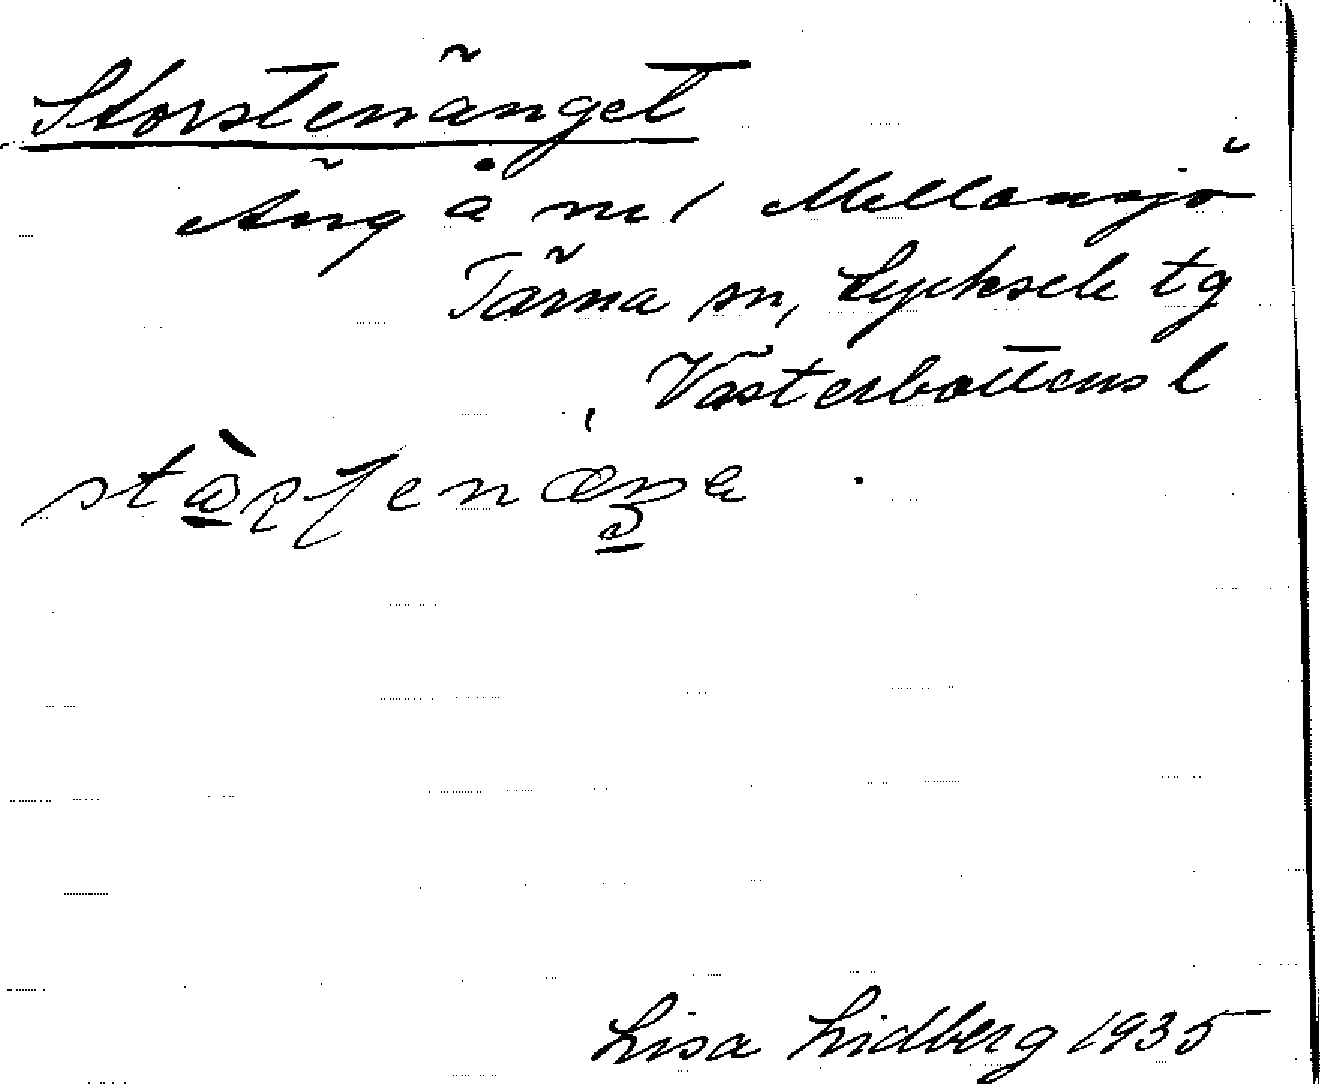 Storstenänget
Äng å nr 1 Mellansjö
Tärna sn, Lycksele tg
Västerbottens l
Lisa Lidberg 1935